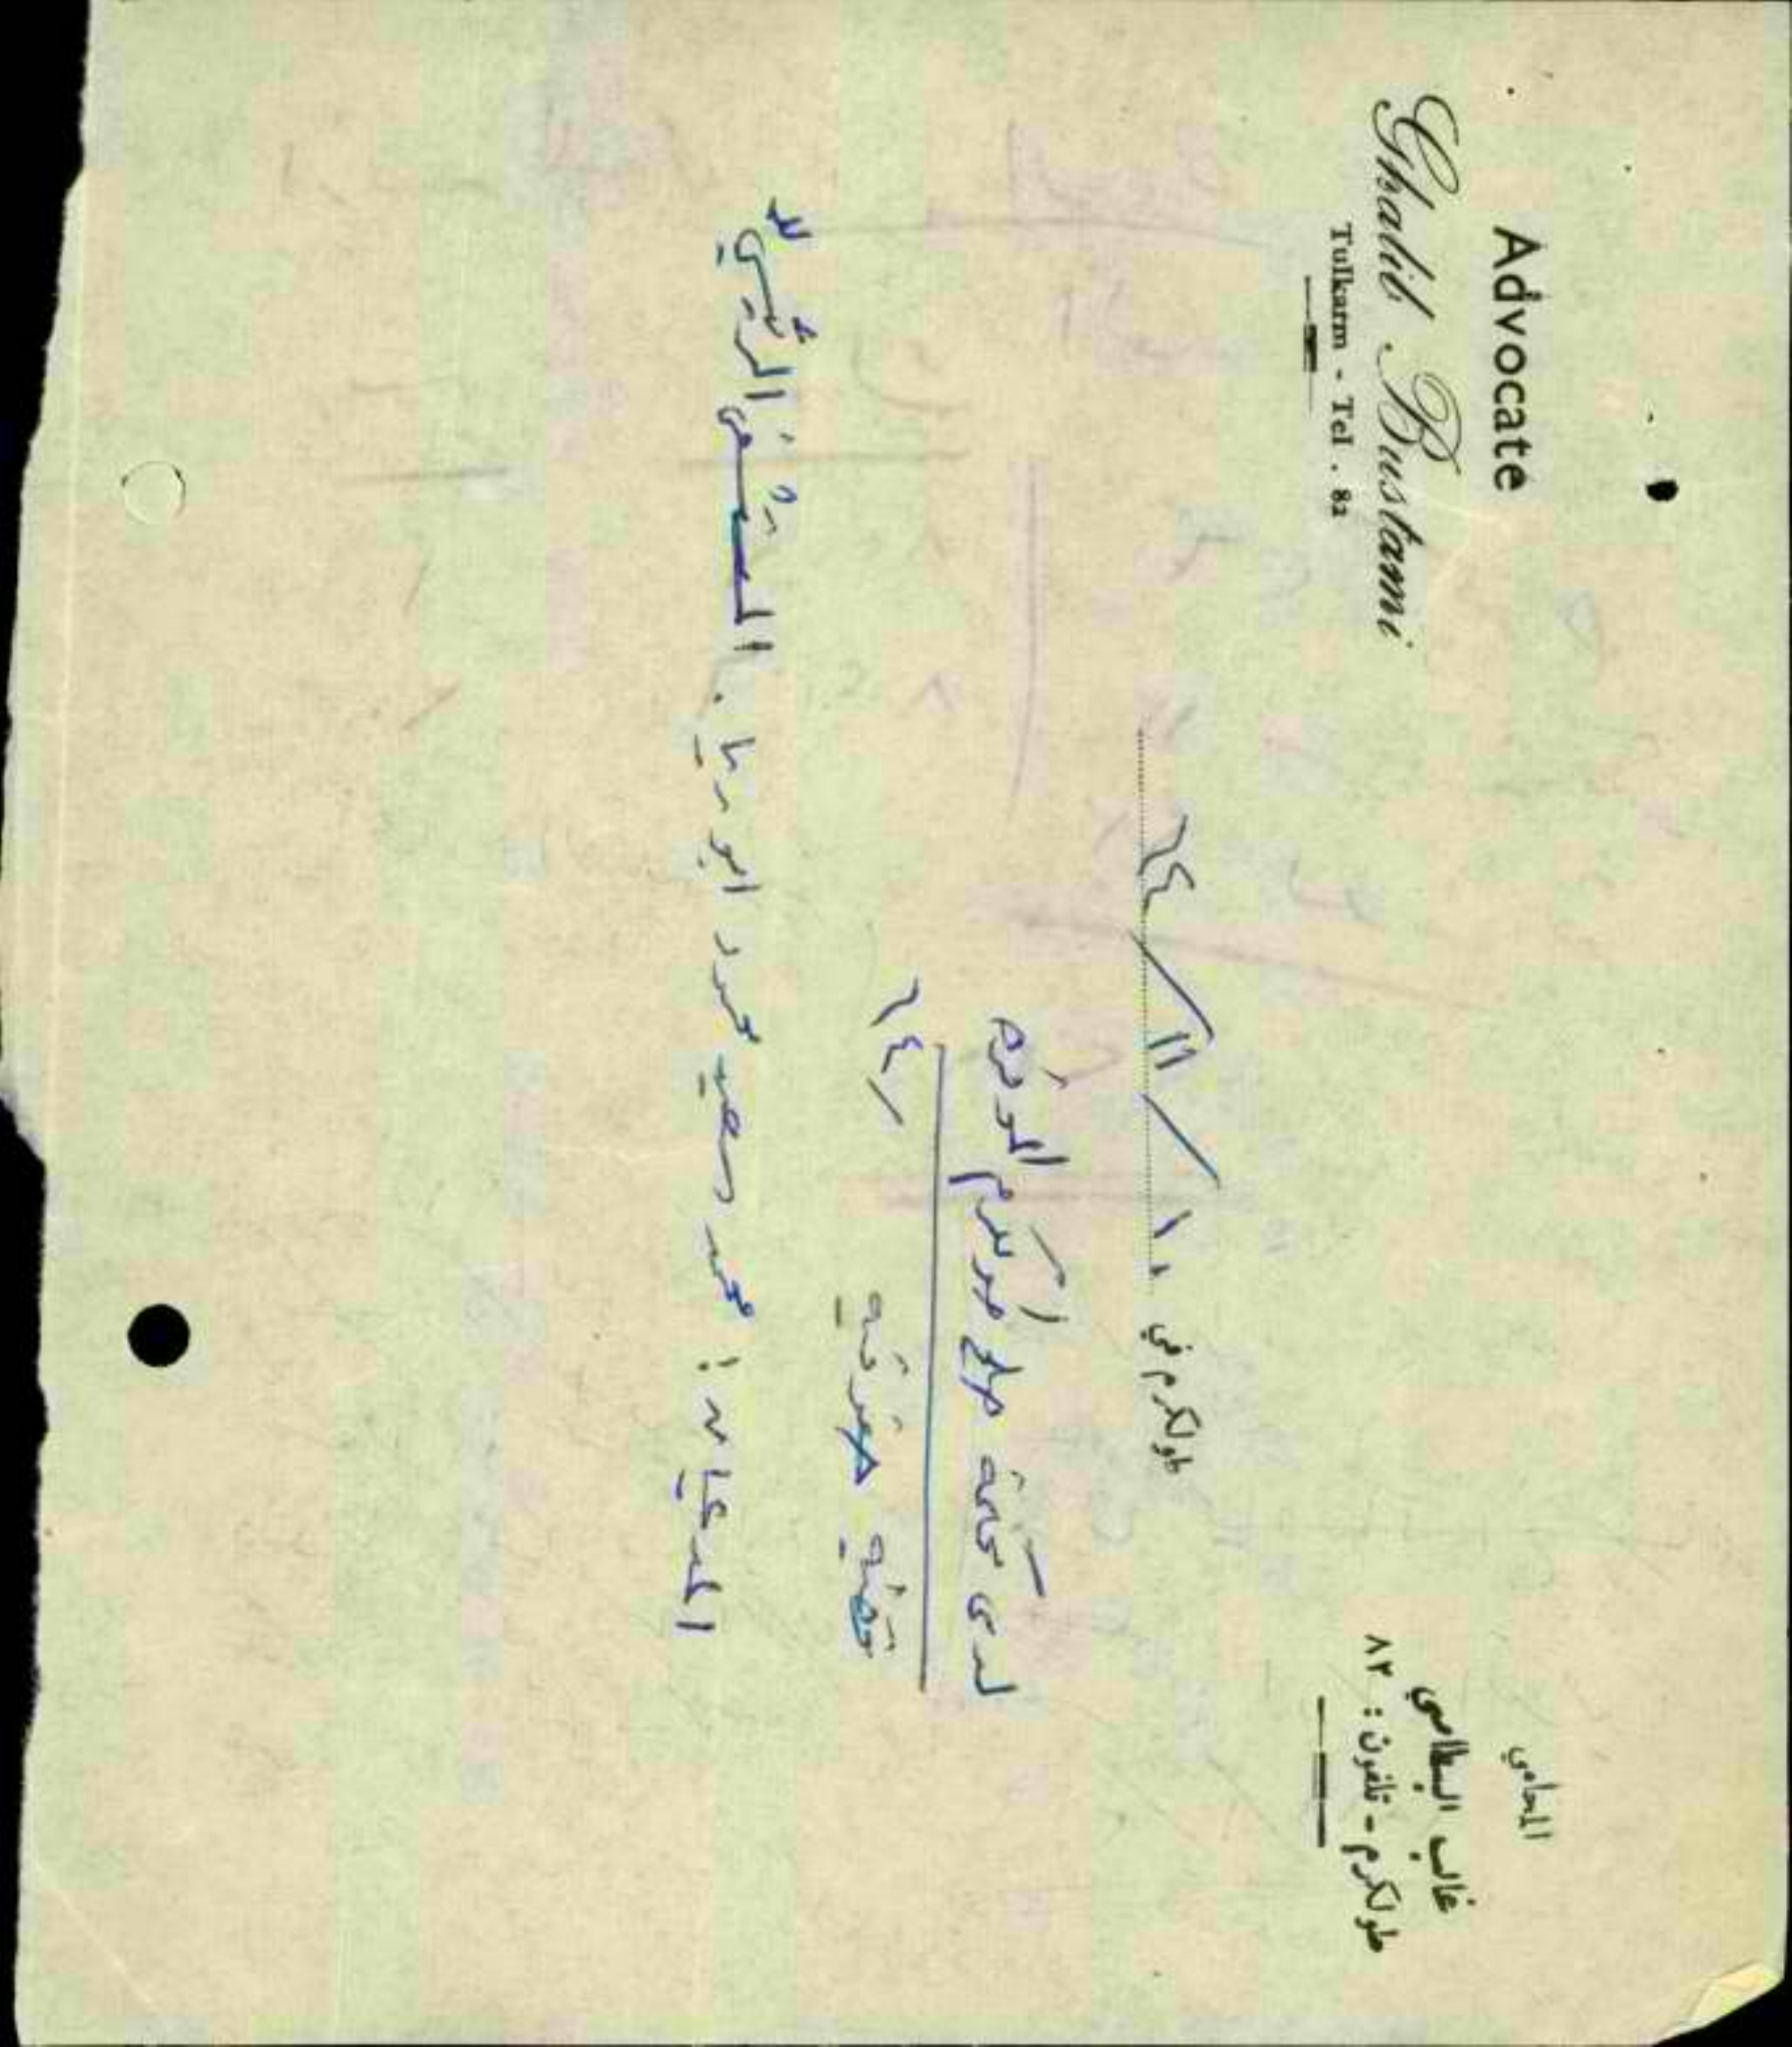 Advocate
Ghalib Bustami
Tulkarm - Tel . 82
المحامي
غالب البسطامي
طولكرم - تلفون : ٨٢
طولكرم في ١٠ / ١١ / ٦٤
لدى محكمة صلح طولكرم الموقرة
قضية صلحية
/ ٦٤
المدعيان : محمد سعيد محمود ابو ريا . المستدعى الرئيسي